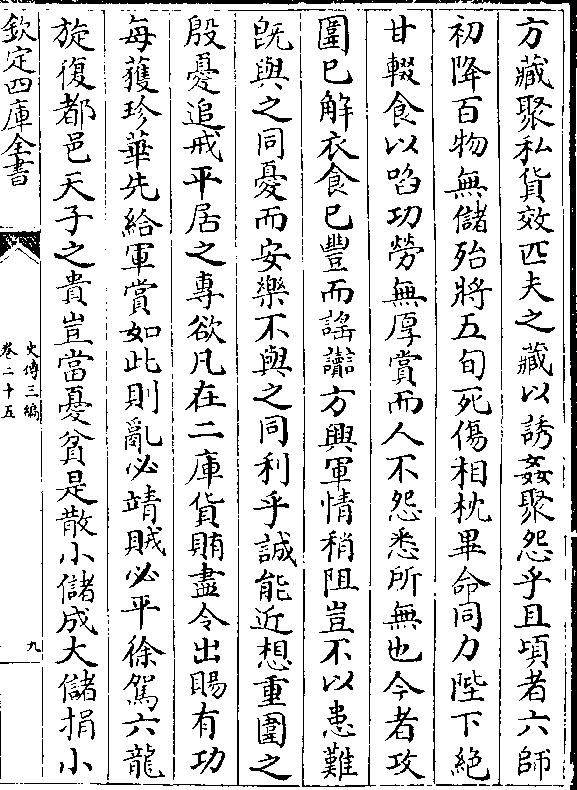 方藏聚私貨效匹夫之藏以誘姦聚怨乎且頃者六師
初降百物無儲殆將五旬死傷相枕畢命同力陛下絶
甘輟食以啗功勞無厚賞而人不怨悉所無也今者攻
圍已解衣食已豐而謡讟方興軍情稍阻豈不以患難
既與之同憂而安樂不與之同利乎誠能近想重圍之
殷憂追戒平居之專欲凡在二庫貨賄盡令出賜有功
每獲珍華先給軍賞如此則亂必靖賊必平徐駕六龍
旋復都邑天子之貴豈當憂貧是散小儲成大儲捐小
欽定四庫全書
史傳三編
卷二十五
九